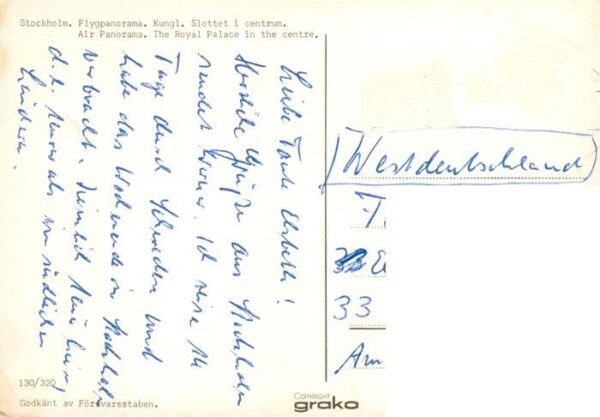 Stockholm. Flygpanorama. Kungl. Slottet i centrum.
Air Panorama. The Royal Palace in the centre.
Liebe Tante Elsbeth!
Herzliche Grüße aus Stockholm
sendet Werner. Ich reise 14
Tage durch Schweden und
habe das Wochenende in Stockholm
verbracht. Ziemlich teuer hier,
d.h. teurer als in südlichen
Ländern.
(Westdeutschland)
33
Am
130/320
Godkänt av Försvarsstaben.
COPYRIGHT
grako